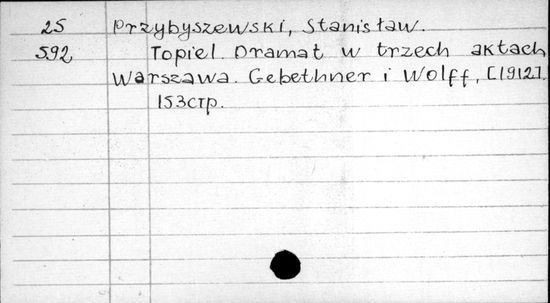 25 Przybyszewski, Stanisław.
592 Topiel. Dramat w trzech aktach
Warszawa. Gebethner i Wolff, [1912].
153стр.